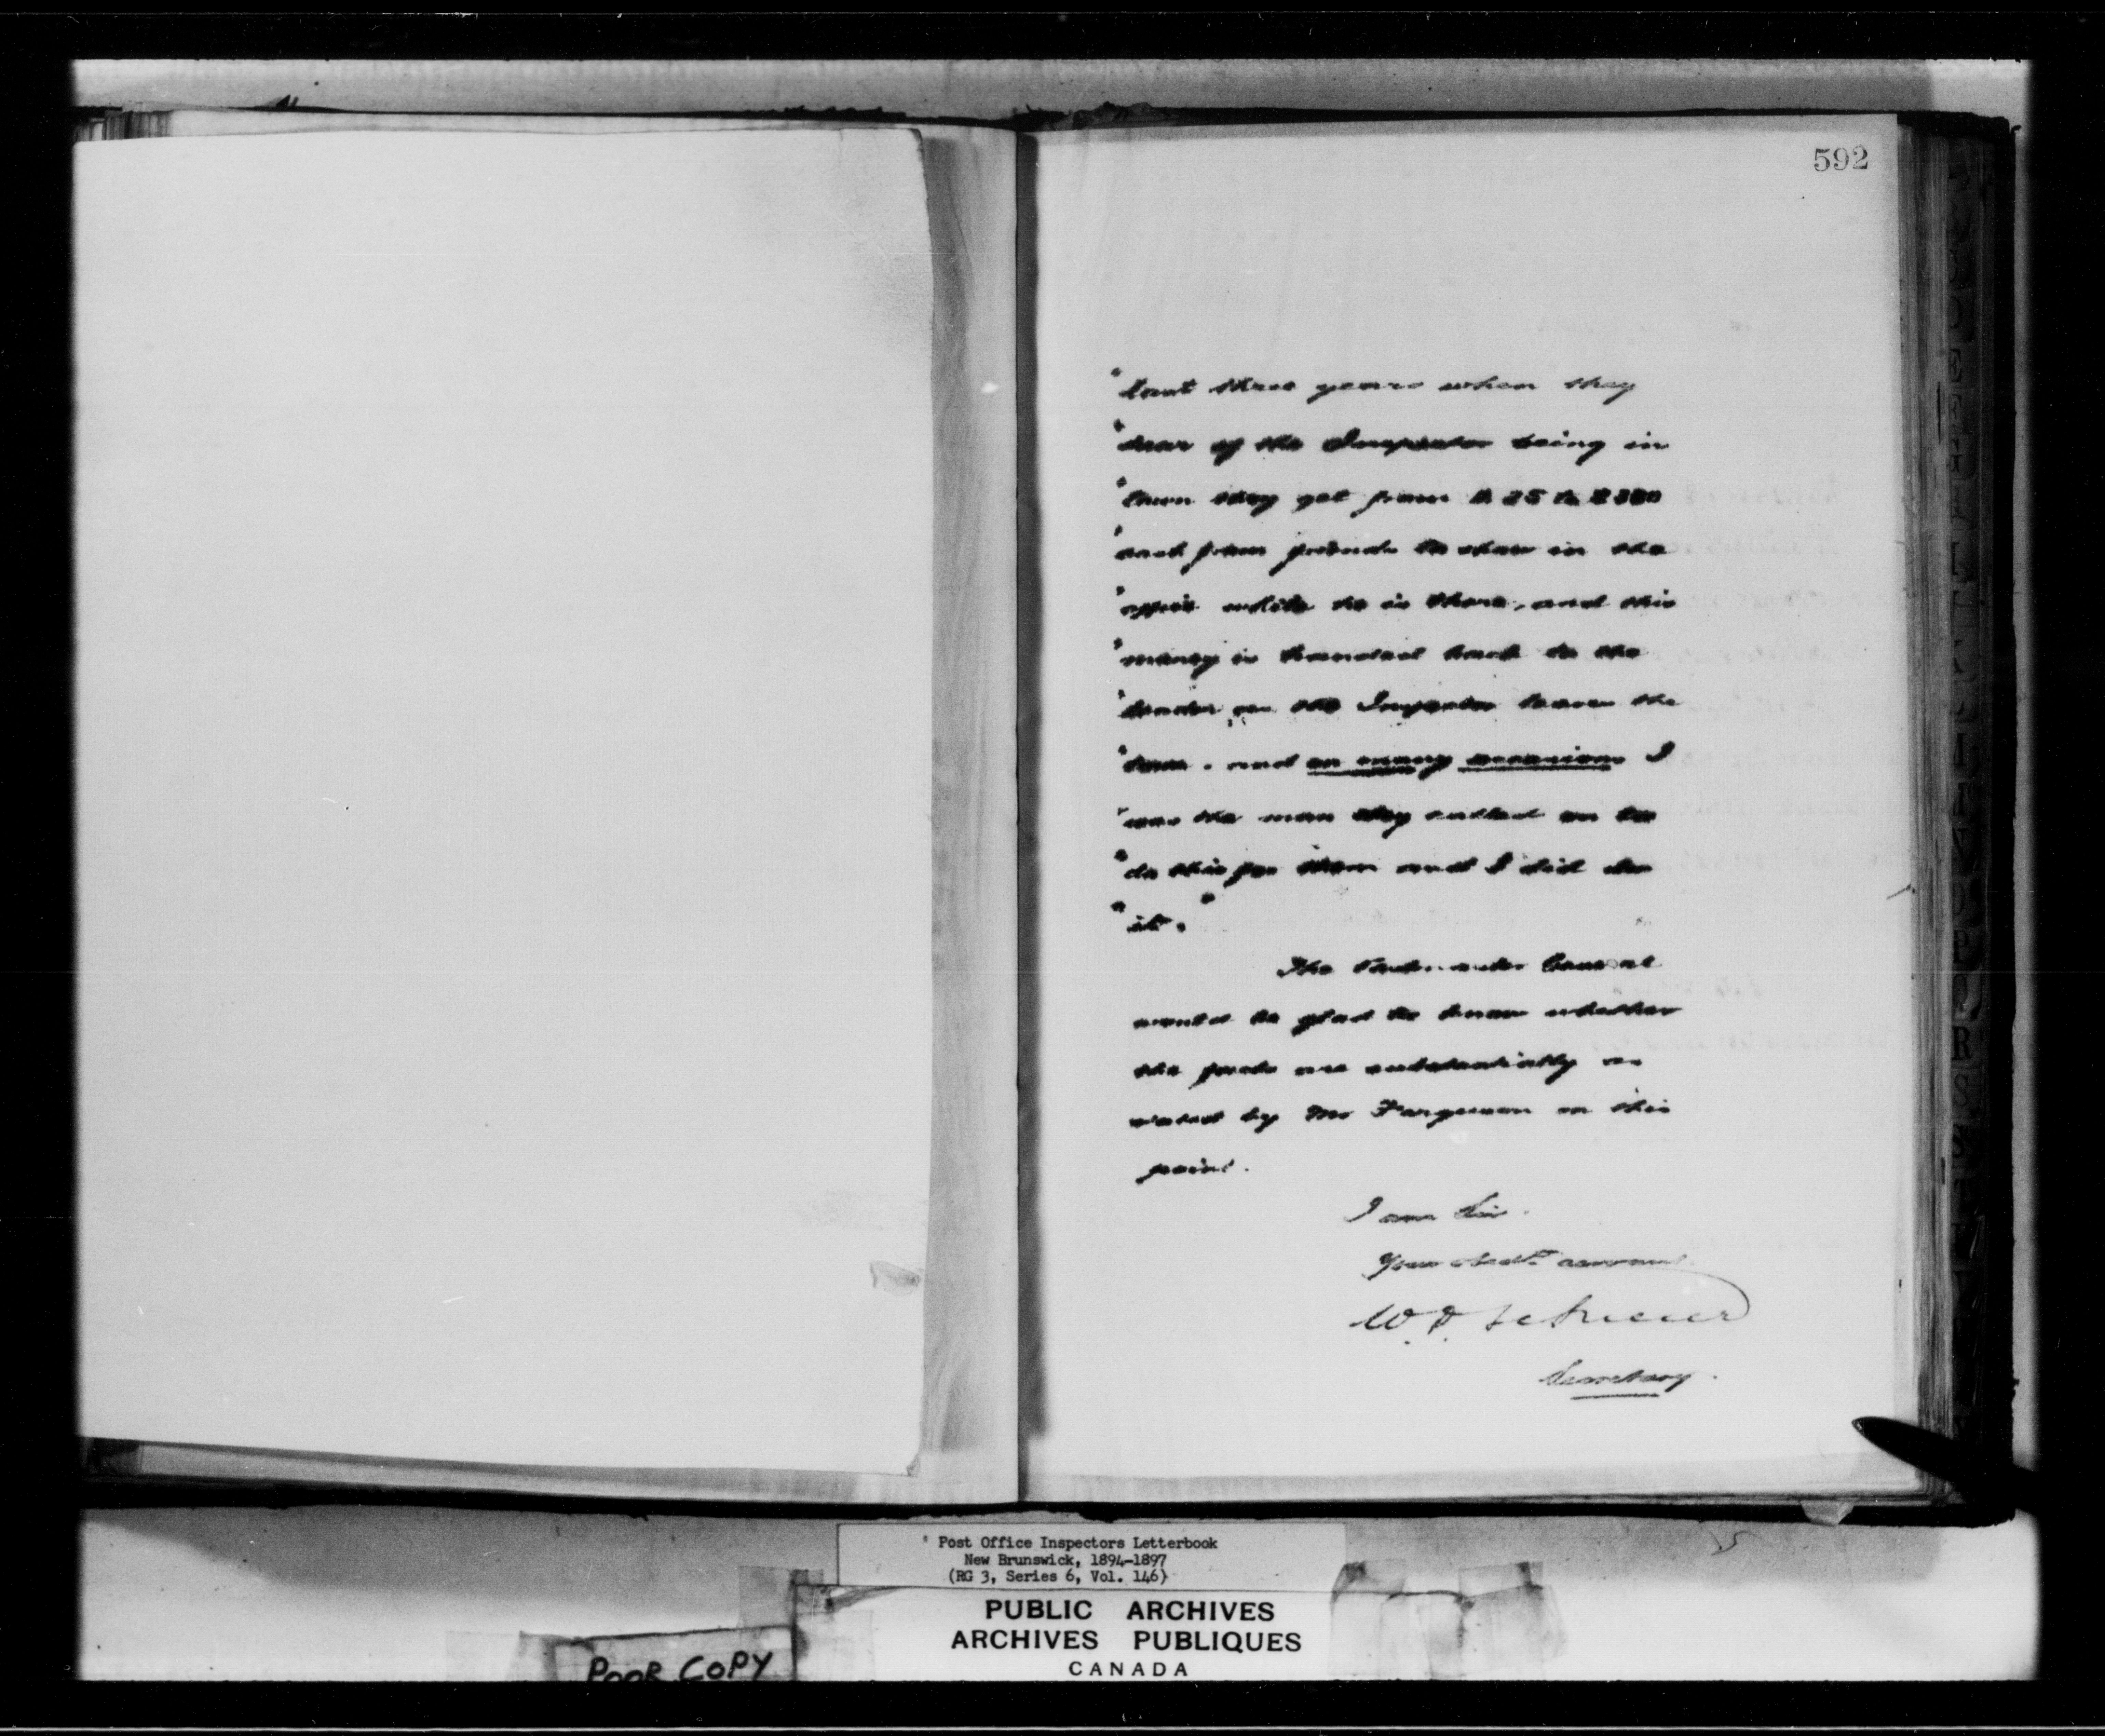 592
"last three years when they
"hear of the Inspector being in
"town they get from $25 to
"and from friends to show in the
"office while he is there, and this
"money is handed back to the
"lender as the Inspector leaves the
"town. and on many occasions I
"was the man they called on to
"do this for them and I did do
"it."
The Postmaster General
would be glad to know whether
the facts are substantially as
stated by Mr Ferguson on this
point.
I am Sir.
Your obedt. servant
W. D. LeSueur
Secretary.
Post Office Inspectors Letterbook
New Brunswick, 1894-1897
(RG 3, Series 6, Vol. 146)
PUBLIC ARCHIVES
ARCHIVES PUBLIQUES
CANADA
POOR COPY